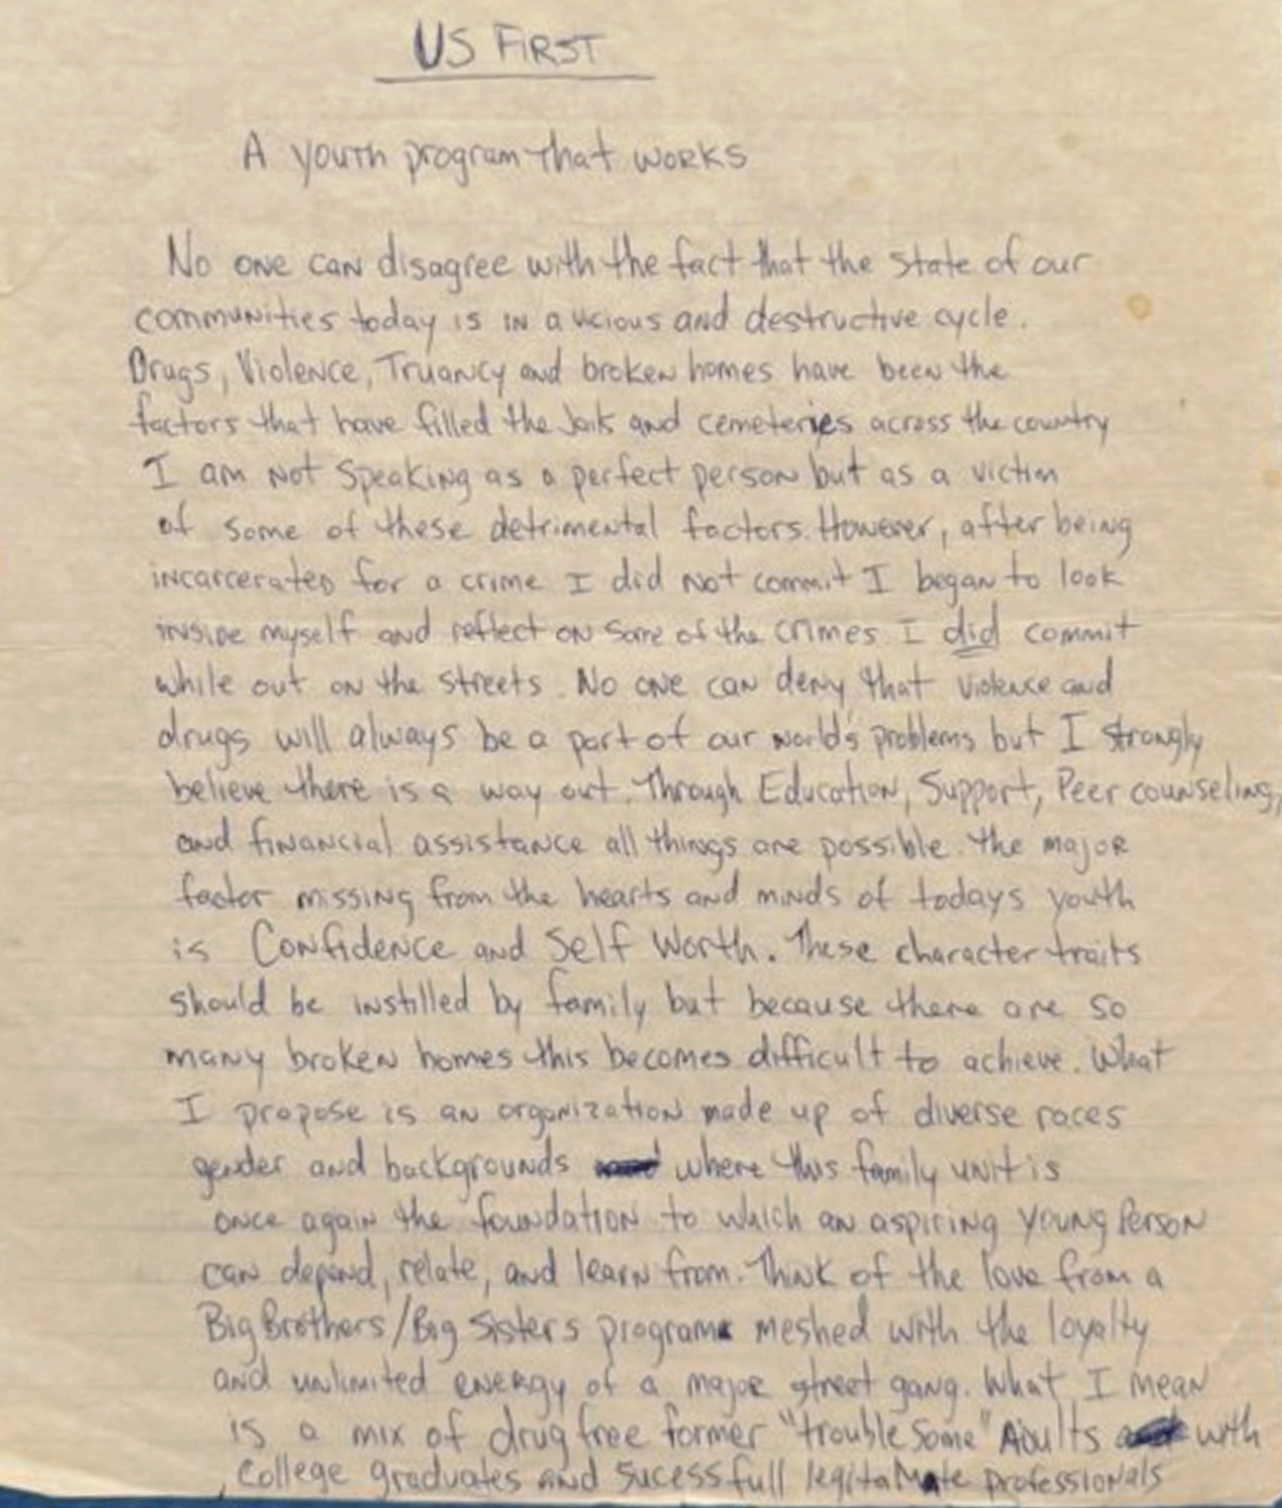 US FIRST
A youth program that works
No one can disagree with the fact that the state of our
communities today is in a vicious and destructive cycle.
Drugs, Violence, Truancy and broken homes have been the
factors that have filled the Jails and cemeteries across the country
I am not speaking as a perfect person but as a victim
of some of these detrimental factors. However, after being
incarcerated for a crime I did not commit I began to look
inside myself and reflect on some of the crimes I did commit
while out on the streets. No one can deny that violence and
drugs will always be a part of our world's problems but I strongly
believe there is a way out. Through Education, Support, Peer counseling,
and financial assistance all things are possible. The major
factor missing from the hearts and minds of todays youth
is Confidence and Self Worth. These character traits
should be instilled by family but because there are so
many broken homes this becomes difficult to achieve. What
I propose is an organization made up of diverse races
gender and backgrounds where this family unit is
once again the foundation to which an aspiring young Person
can depend, relate, and learn from. Think of the love from a
Big Brothers/Big Sisters program meshed with the loyalty
and unlimited energy of a major street gang. What I mean
is a mix of drug free former "trouble some" Adults with
College graduates and sucessfull legitamate professionals